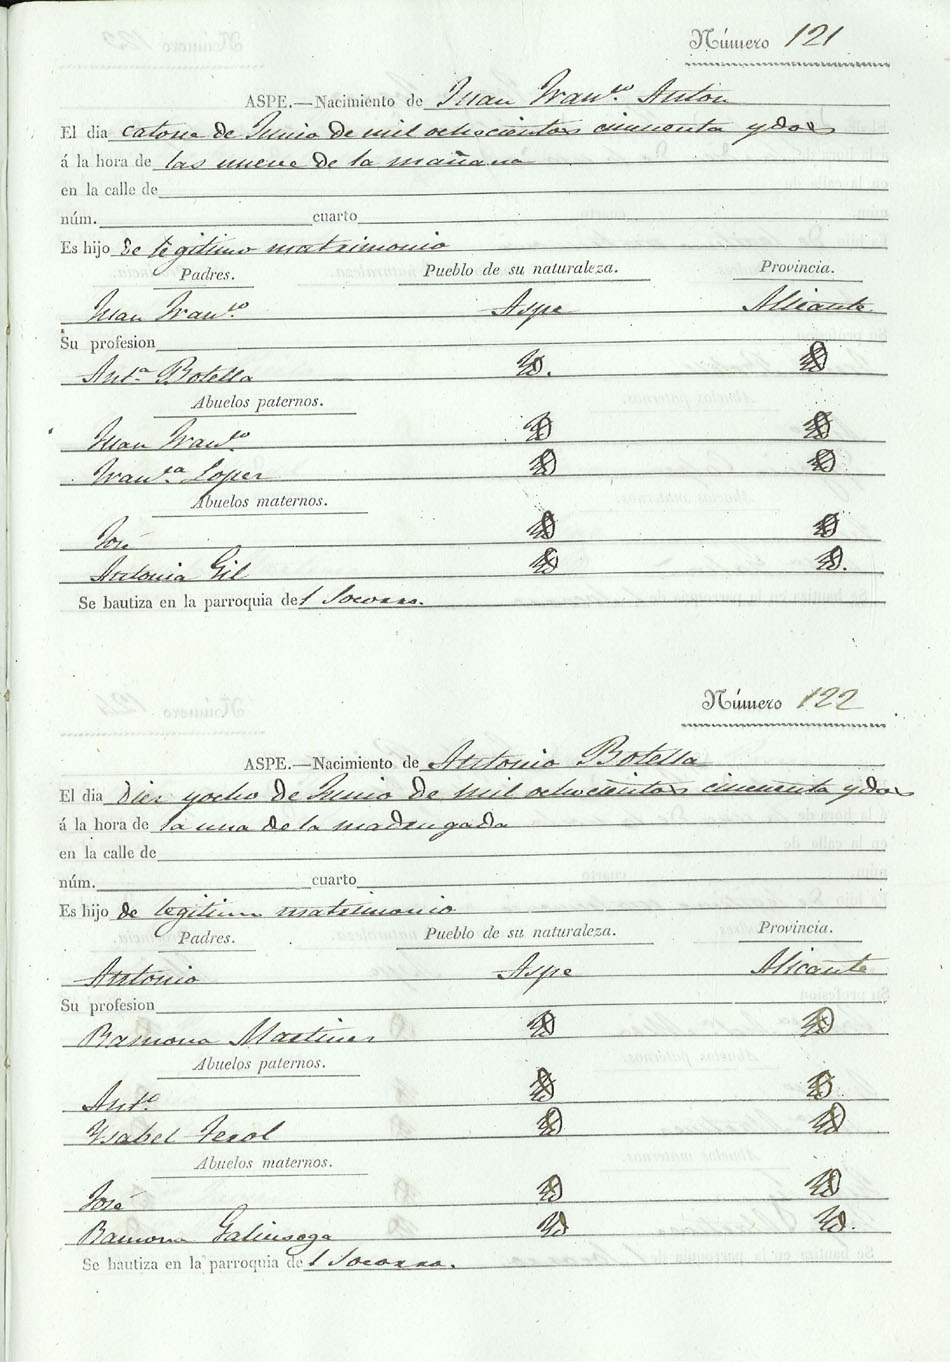 Número 121
ASPE.—Nacimiento de Juan Franco. Anton
El dia catorce de Junio de mil ochocientos cincuenta y dos
á la hora de las nueve de la mañana
en la calle de
núm. cuarto
Es hijo de legitimo matrimonio
Padres. Pueblo de su naturaleza. Provincia.
Juan Franco. Aspe Alicante
Su profesion
Anta. Botella Yd. Yd
Abuelos paternos.
Juan Franco Yd Yd
Franca Lopez Yd Yd
Abuelos maternos.
José Yd Yd
Antonia Gil Yd Yd.
Se bautiza en la parroquia del Socorro.
Número 122
ASPE.—Nacimiento de Antonio Botella
El dia Diez y ocho de Junio de mil ochocientos cincuenta y dos
á la hora de la una de la madrugada
en la calle de
núm. cuarto
Es hijo de legitimo matrimonio
Padres. Pueblo de su naturaleza. Provincia.
Antonio Aspe Alicante
Su profesion
Ramona Martinez Yd Yd
Abuelos paternos.
Anto. Yd Yd
Ysabel Terol Yd Yd
Abuelos maternos.
José Yd Yd
Ramona Galinsoga Yd Yd.
Se bautiza en la parroquia del Socorro.